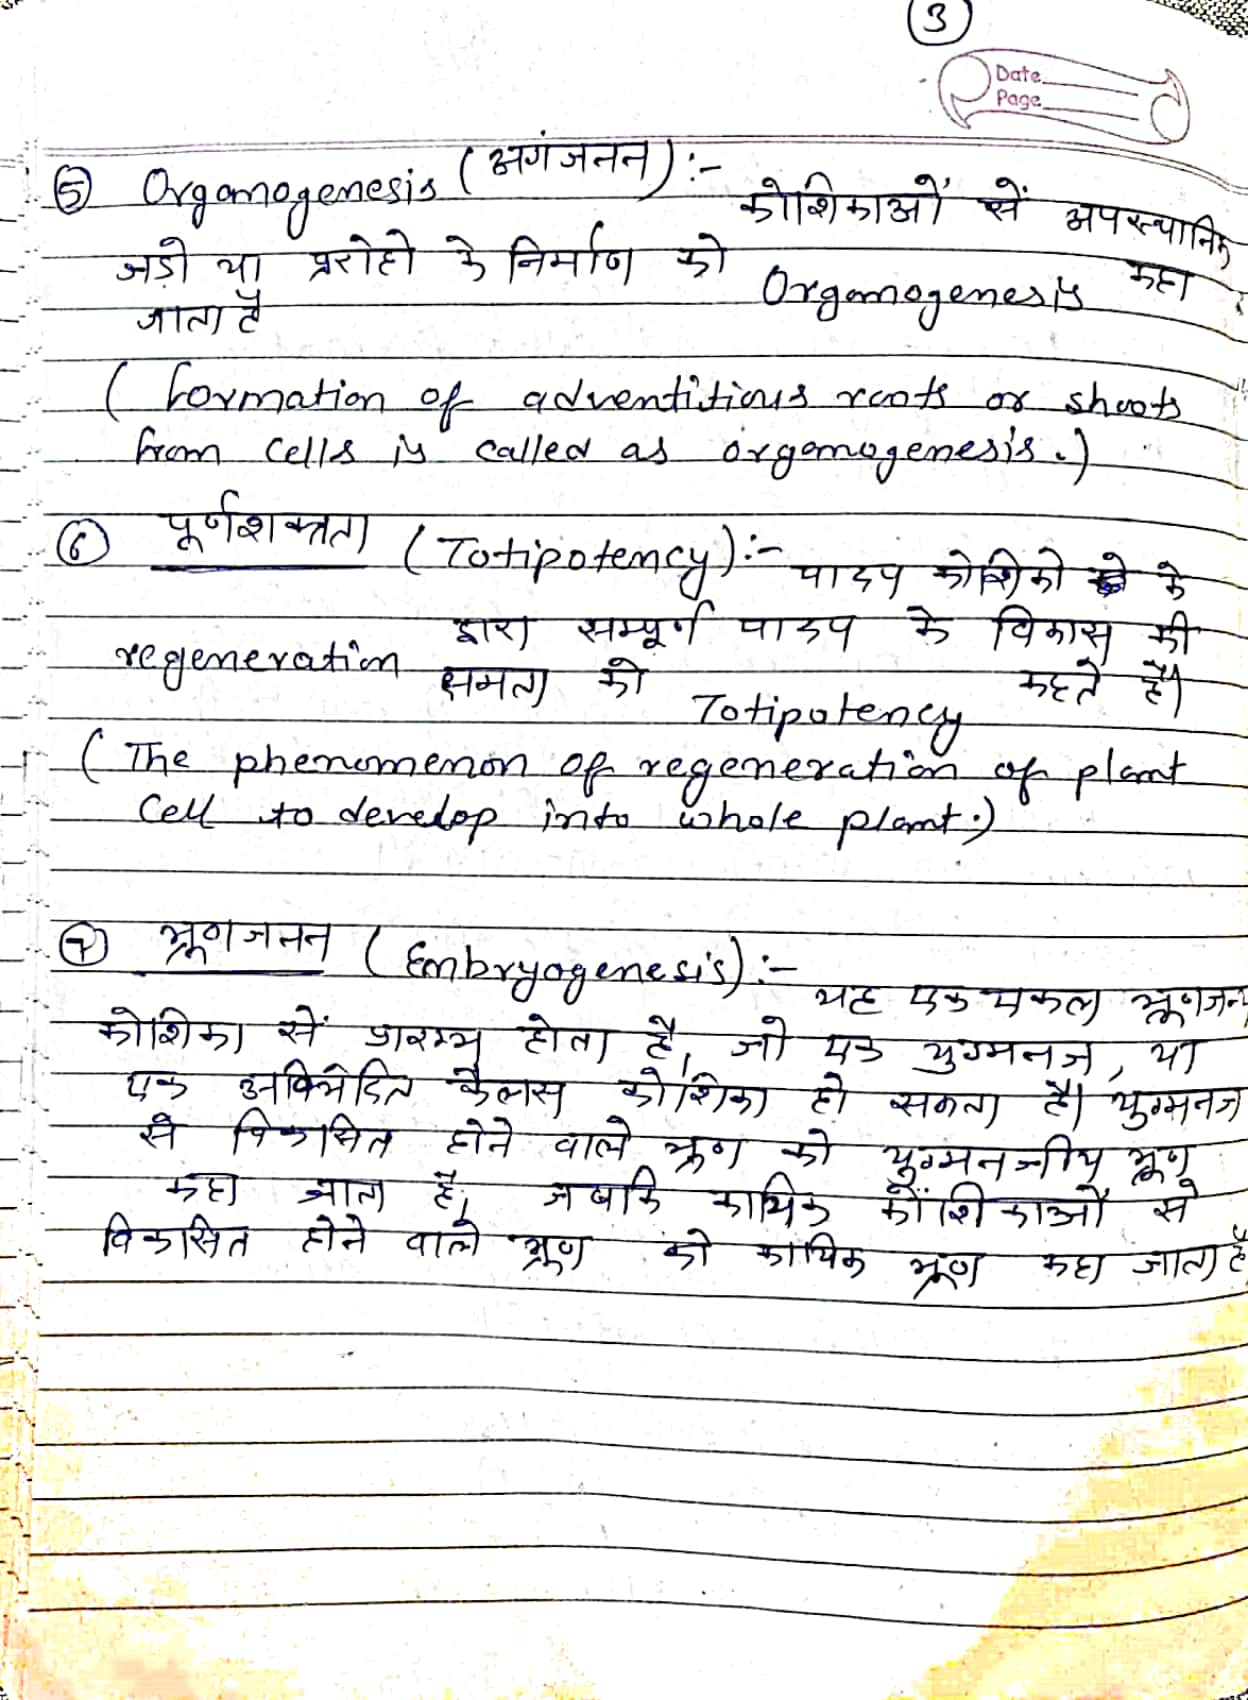 3
Date
Page
5 Organogenesis (अगंजनन) :- कोशिकाओं सें अपस्थानिक
जड़ो या प्ररोहो के निर्माण को Organogenesis कहा
जाता है
( formation of adventitious roots or shoots
from cells is called as organogenesis.)
6 पूर्णशक्तता (Totipotency) :- पादप कोशिको के
regeneration द्वारा सम्पूर्ण पादप के विकास की
क्षमता को Totipotency कहते है।
( The phenomenon of regeneration of plant
Cell to develop into whole plant.)
7 भ्रूणजनन ( Embryogenesis) :- यह एक एकल भ्रूणजन
कोशिका सें प्रारम्भ होता है, जो एक युग्मनज, या
एक अविभेदित कैलस कोशिका हो सकता है। युग्मनज
से विकसित होने वाले भ्रूण को युग्मनजीय भ्रूण
कहा जाता है, जबकि कायिक कोंशिकाओं से
विकसित होने वाले भ्रूण को कायिक भ्रूण कहा जाता है